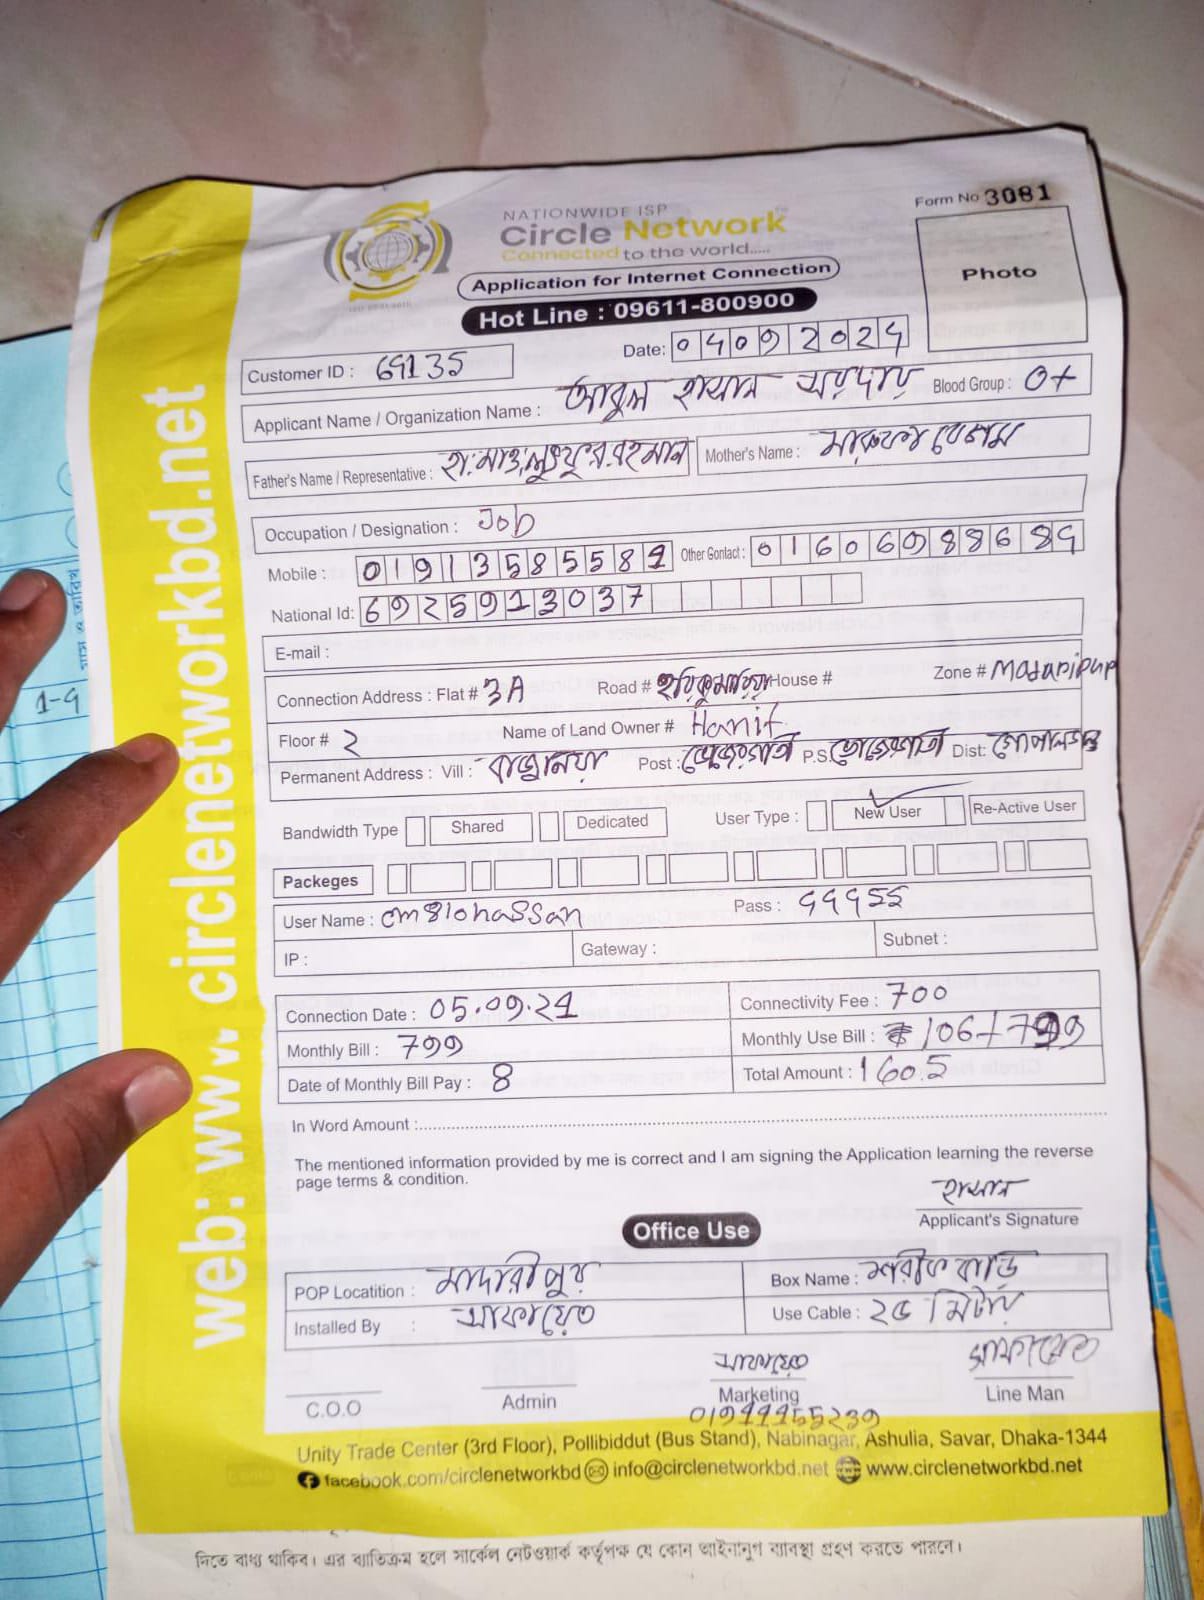 web: www.circlenetworkbd.net
Form No 3081
NATIONWIDE ISP
Circle Network
Connected to the world.....
Application for Internet Connection
Hot Line : 09611-800900
Photo
Date: 04092024
Customer ID : 69135
Applicant Name / Organization Name : আবুল হাসান সরদার Blood Group : O+
Father's Name / Representative : হা:মাও:লুৎফুর রহমান Mother's Name : মারুফা বেগম
Occupation / Designation : Job
Mobile : 01913585581 Other Gontact :
National Id: 6925913037
E-mail :
Connection Address : Flat # 3A Road # House # Zone # Madaripur
Floor # 2 Name of Land Owner # Hanif
Permanent Address : Vill : Post : P.S. Dist: গোপালগঞ্জ
Bandwidth Type Shared Dedicated User Type : New User Re-Active User
Packeges
User Name : cm810hassan Pass :
IP : Gateway : Subnet :
Connection Date : 05.09.24 Connectivity Fee : 700
Monthly Bill : 799 Monthly Use Bill : 106+799
Date of Monthly Bill Pay : 8 Total Amount : 1605
In Word Amount :
The mentioned information provided by me is correct and I am signing the Application learning the reverse
page terms & condition.
হাসান
Applicant's Signature
Office Use
POP Locatition : মাদারীপুর Box Name : শরীফ বাড়ি
Installed By : সাফায়েত Use Cable : ২৫ মিটার
সাফায়েত সাফায়েত
C.O.O Admin Marketing Line Man
Unity Trade Center (3rd Floor), Pollibiddut (Bus Stand), Nabinagar, Ashulia, Savar, Dhaka-1344
facebook.com/circlenetworkbd info@circlenetworkbd.net www.circlenetworkbd.net
দিতে বাধ্য থাকিব। এর ব্যতিক্রম হলে সার্কেল নেটওয়ার্ক কর্তৃপক্ষ যে কোন আইনানুগ ব্যবস্থা গ্রহণ করতে পারবে।